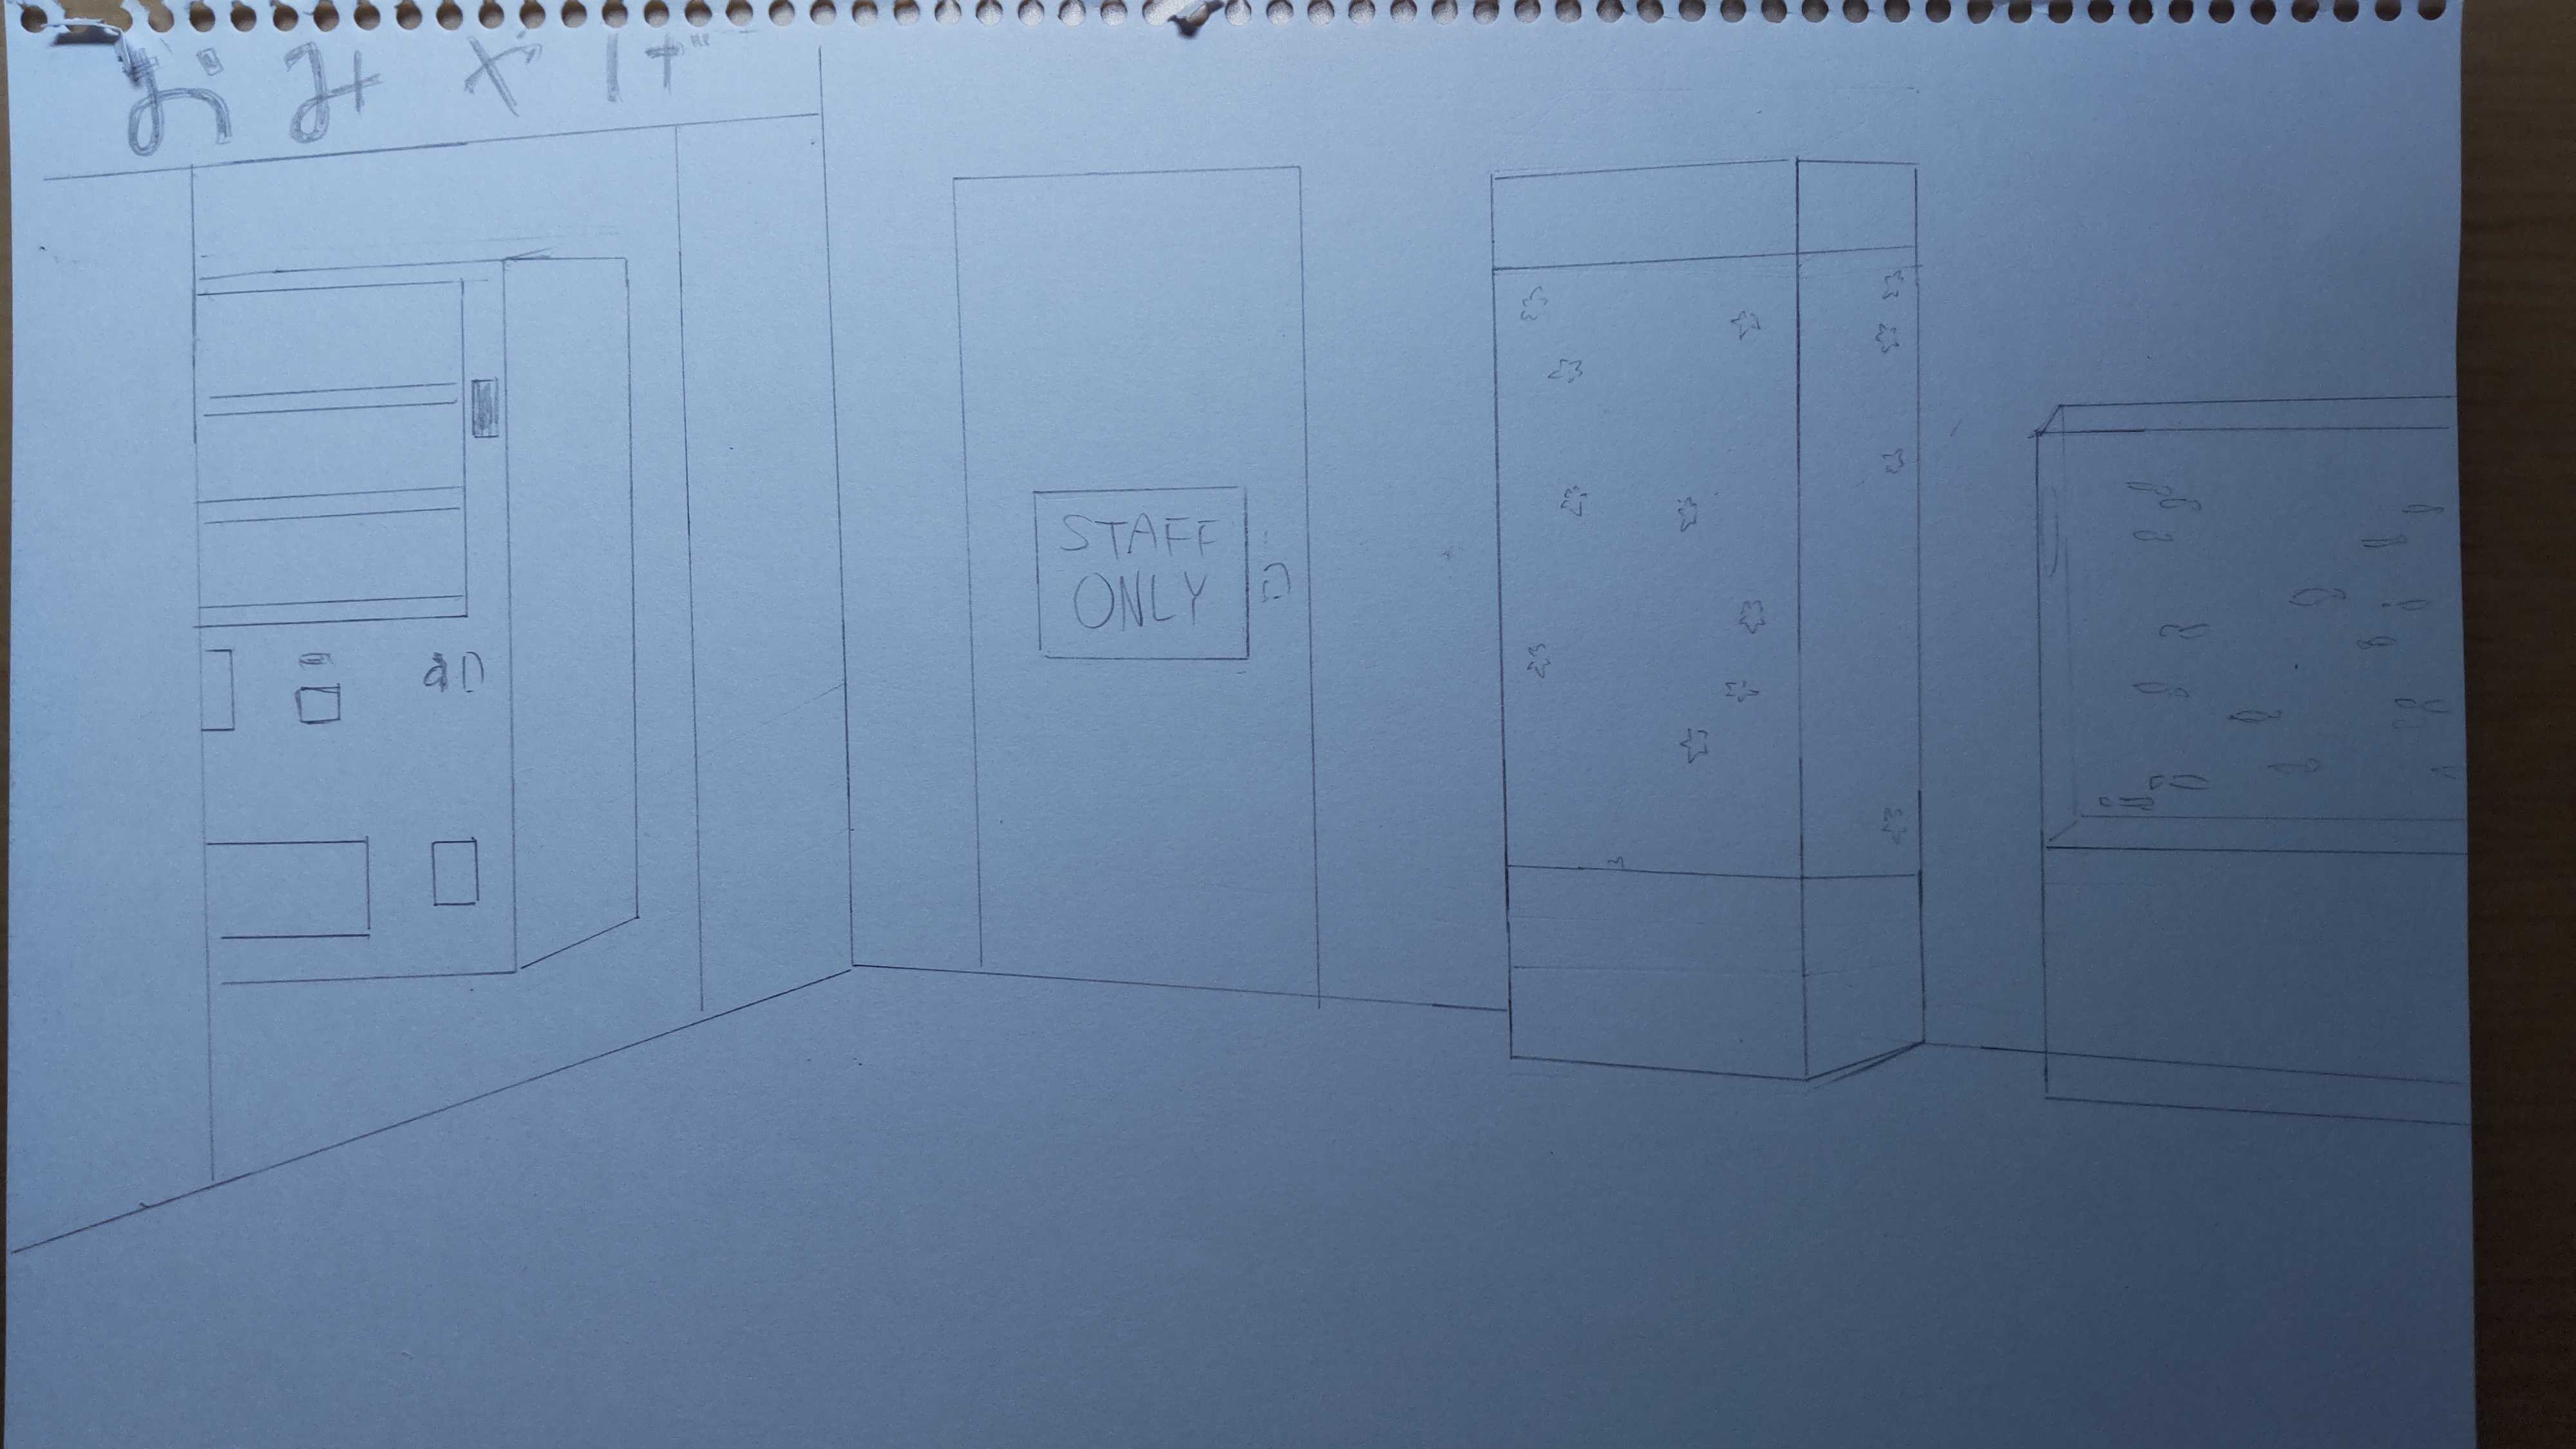 おみやげ
STAFF
ONLY